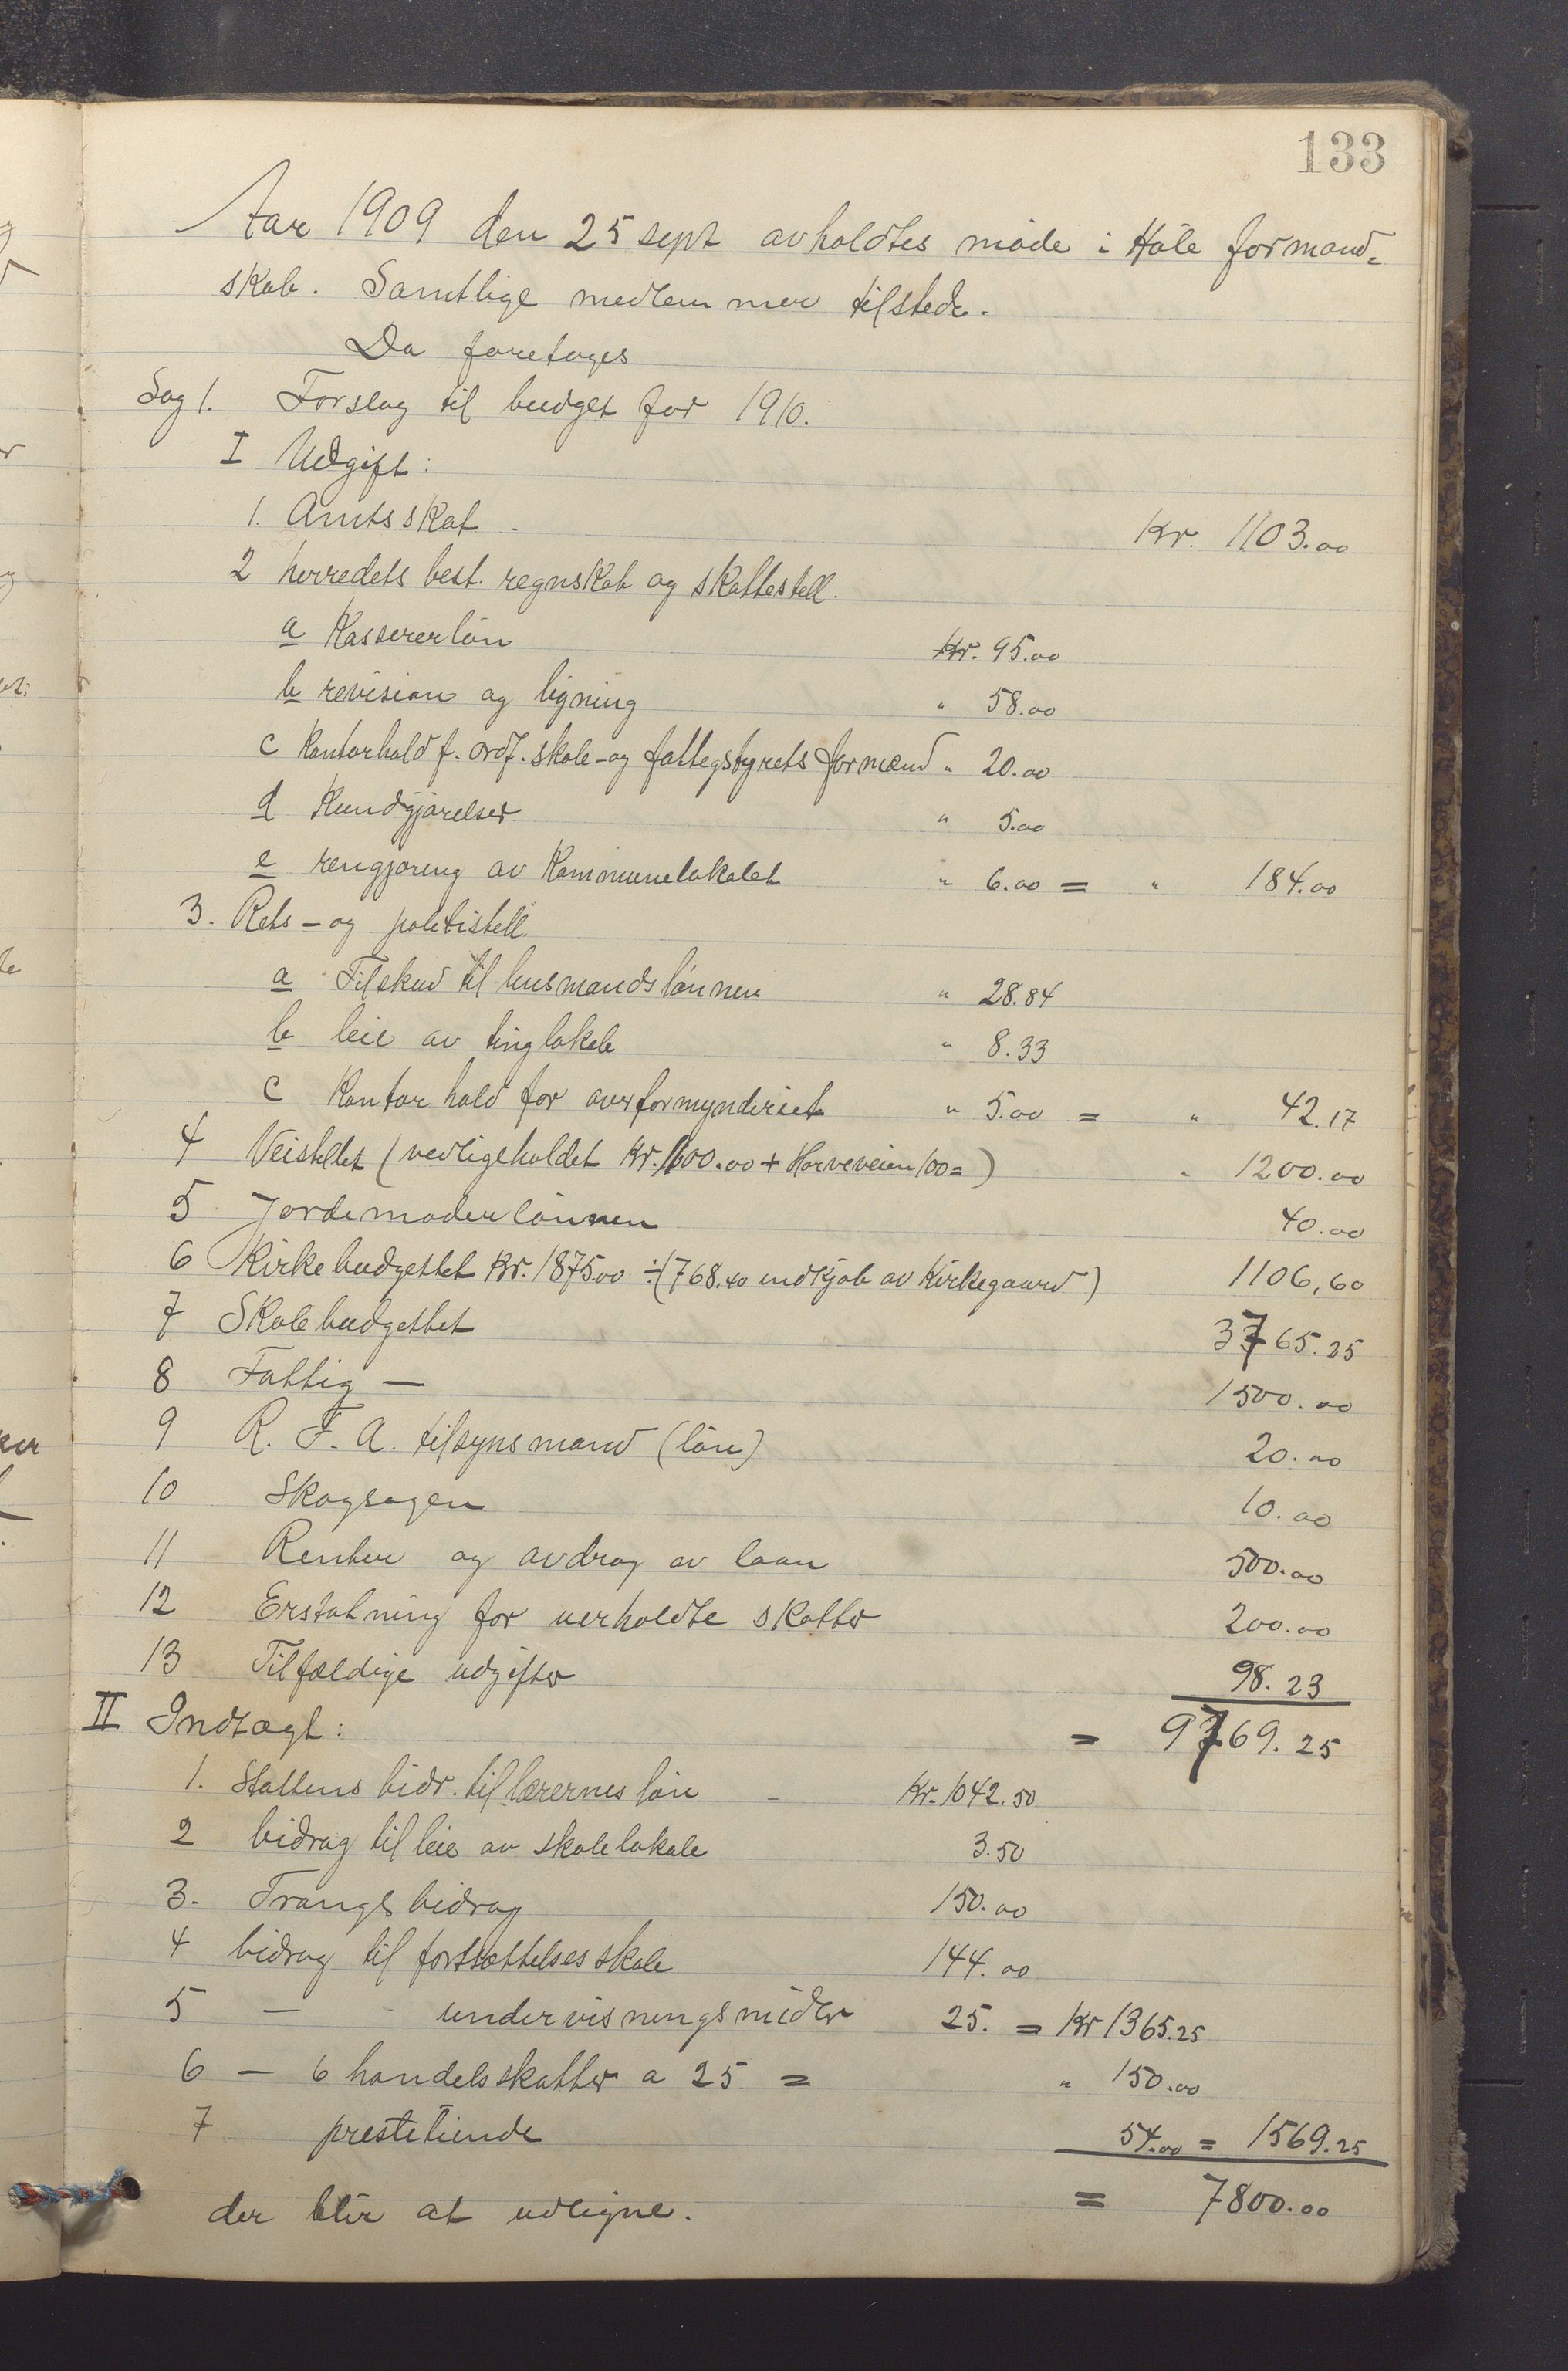 133
Aar 1909 den 25 sept avholdtes møde i Høle formand-
skab. Samtlige medlemmer tilstede.
Da foretoges
Sag 1. Forslag til budget for 1910.
I Udgift:
1. Amtsskat. Kr. 1103.00
2 herredets best. regnskab og skattestell.
a Kassererløn Kr. 95.00
b revision og ligning " 58.00
c Kontorhold f. ordf. skole- og fattegstyrets formænd " 20.00
d Kundgjørelser " 5.00
e rengjøring av Kommunelokalet " 6.00 = " 184.00
3. Rets- og politistell.
a Tilskud til lensmandslønnen " 28.84
b leie av tinglokale " 8.33
c Kontorhold for overformynderiet " 5.00 = " 42.17
4 Veistellet (vedligeholdet Kr. 1100.00 + Horveveien 100=) " 1200.00
5 Jordemoderlønnen 40.00
6 Kirkebudgettet Kr. 1875.00 ÷ (768.40 indkjøb av Kirkegaard) 1106,60
7 Skolebudgettet 3765.25
8 Fattig — 1500.00
9 R. F. A. tilsynsmand (løn) 20.00
10 Skogsagen 10.00
11 Renter og avdrag av laan 500.00
12 Erstatning for uerholdte skatter 200.00
13 Tilfældige udgifter 98.23
II Indtægt: = 9769.25
1. Stattens bidr. til lærernes løn - Kr. 1042.50
2 bidrag til leie av skolelokale 3.50
3. Trangsbidrag 150.00
4 bidrag til fortsættelsesskole 144.00
5 — - undervisningsmidler 25. = Kr 1365.25
6 — 6 handelsskatter a 25 = " 150.00
7 prestetiende 54.00 = 1569.25
der blir at udligne. = 7800.00